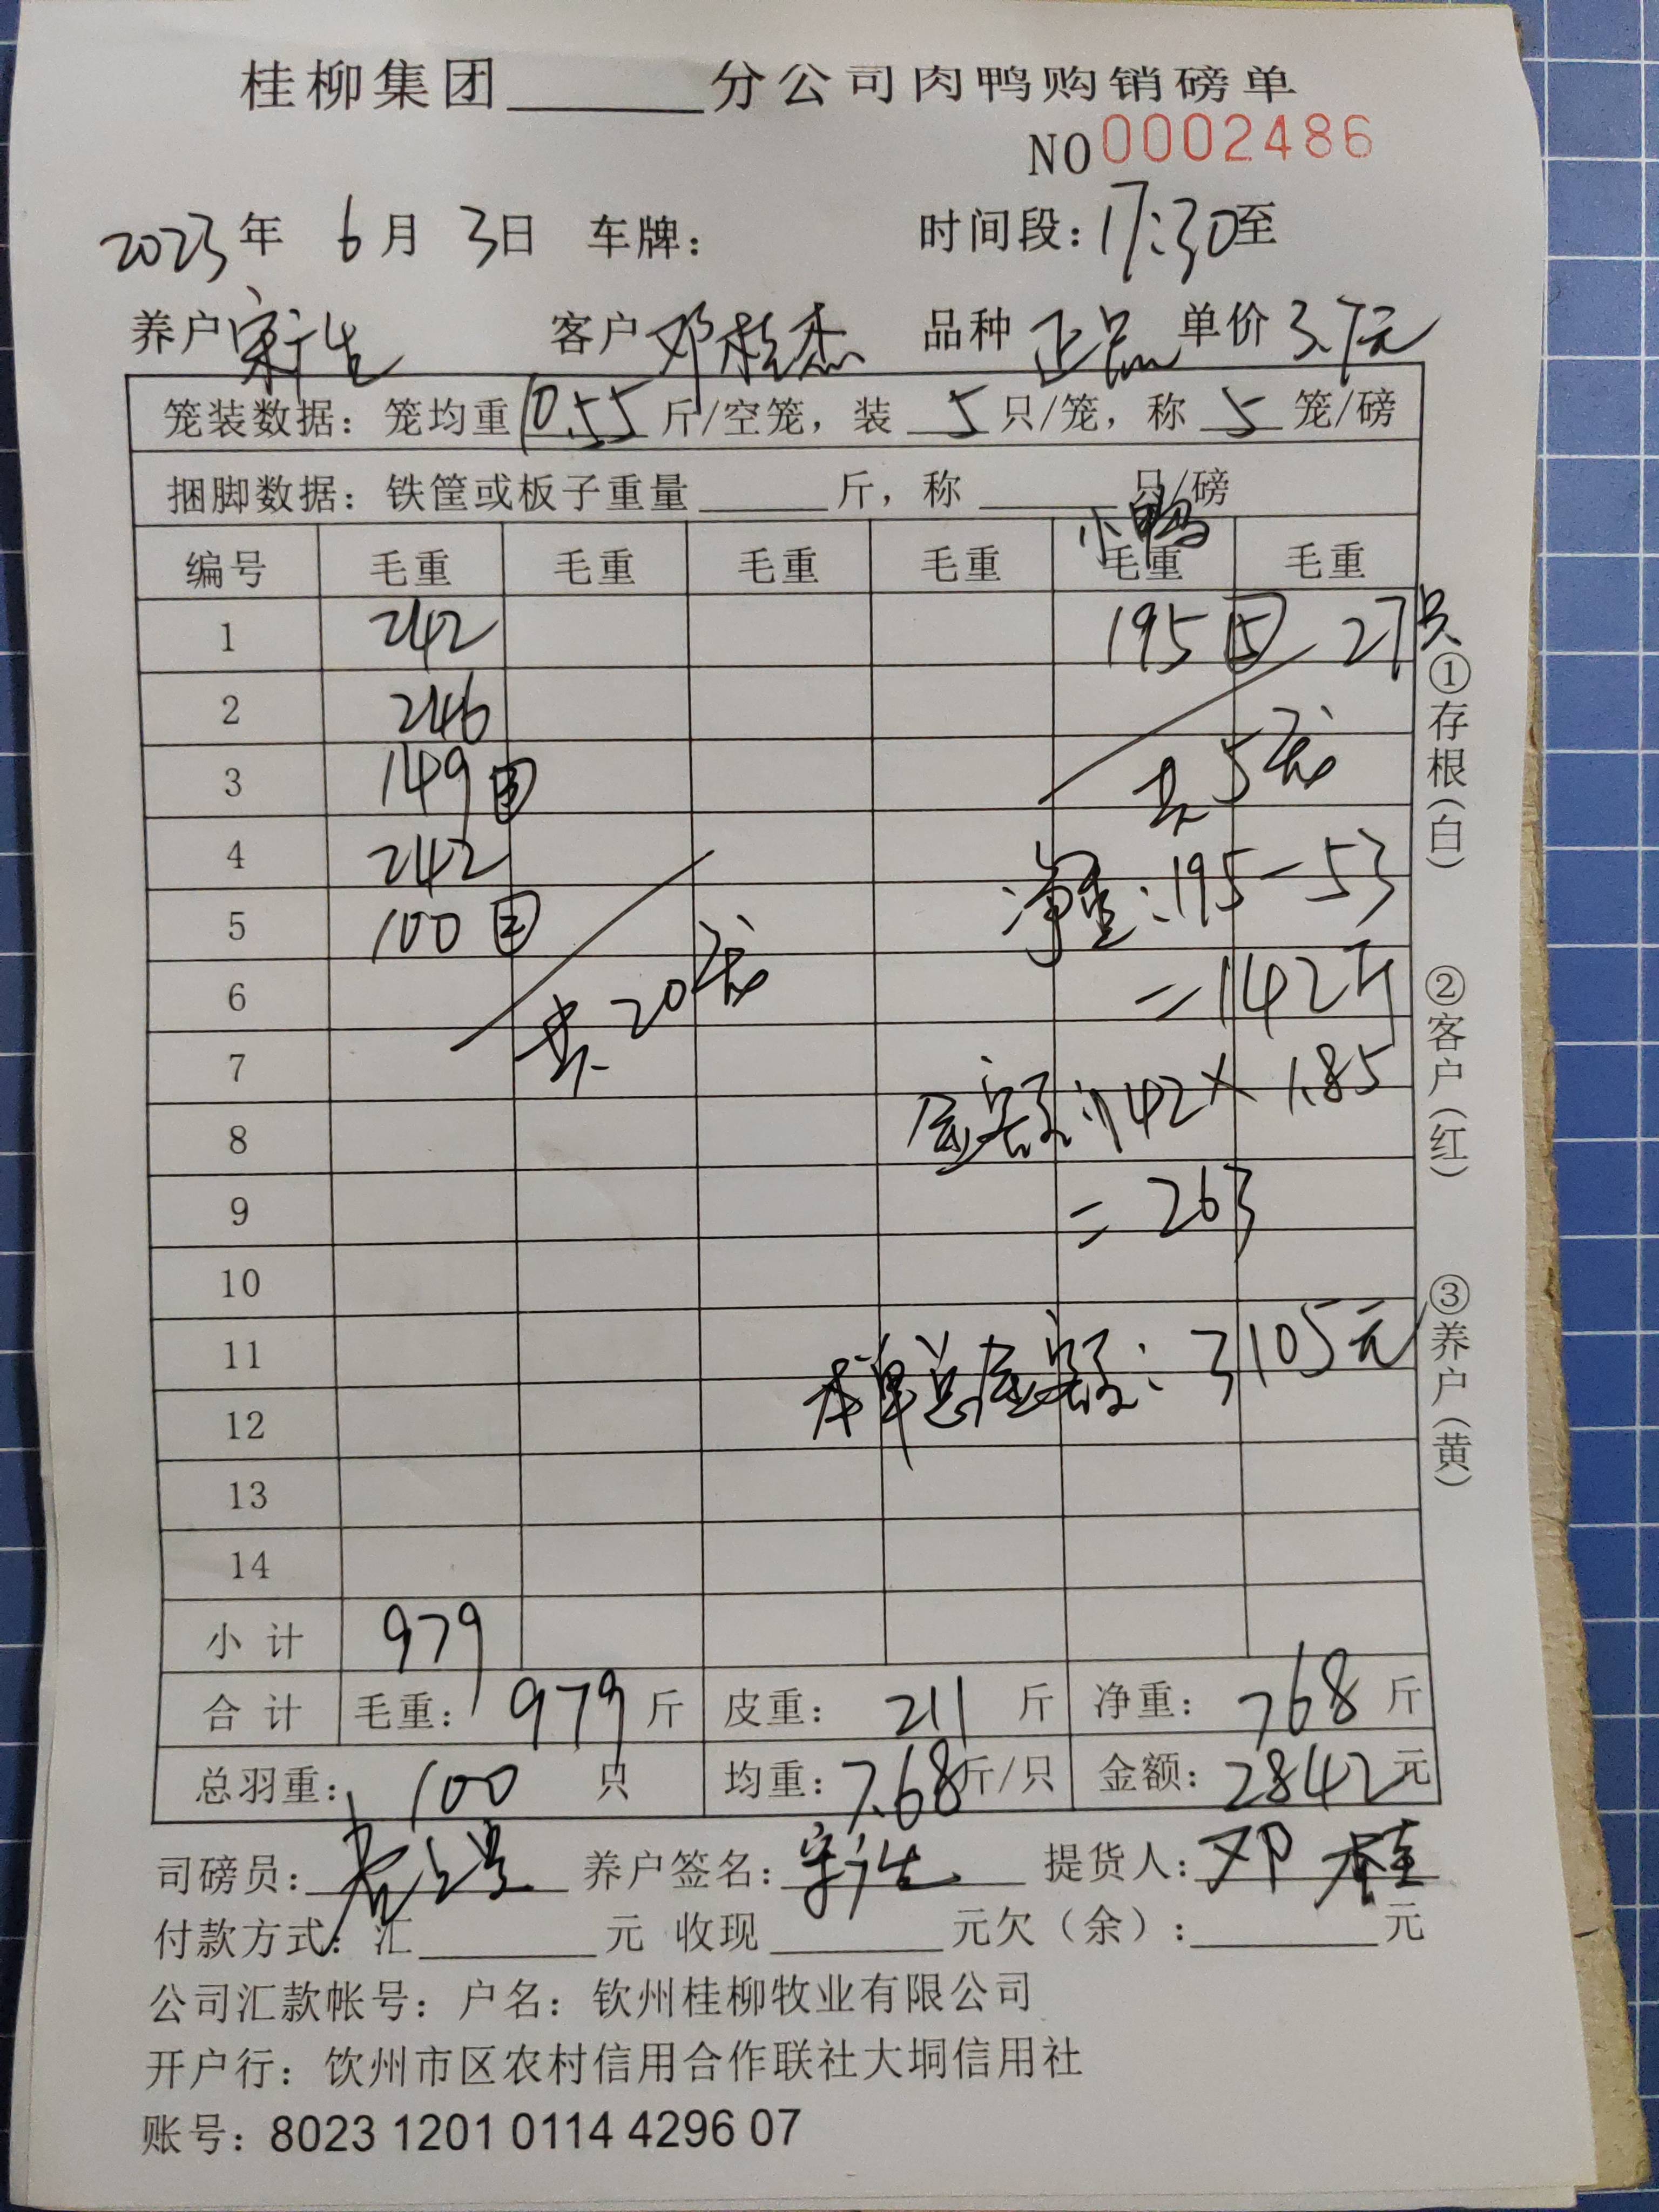 桂柳集团______分公司肉鸭购销磅单
NO 0002486
2023年 6月 3日 车牌： 时间段：17:30至
养户 宋生 客户 邓桂杰 品种 正品 单价 3.7元
笼装数据：笼均重 10.55 斤/空笼，装 5 只/笼，称 5 笼/磅
捆脚数据：铁筐或板子重量______斤，称______只/磅
小鸭
编号 毛重 毛重 毛重 毛重 毛重 毛重
1 242 195 5 27只
2 246
3 149 3 共5笼
4 242 净重：195-53
5 100 2
6 共20笼 =142斤
7 金额：142×1.85
8
9 =263
10
11 本单总金额：3105元
12
13
14
小计 979
合计 毛重：979斤 皮重：211斤 净重：768斤
总羽重：100只 均重：7.68斤/只 金额：2842元
司磅员： 养户签名：宋生 提货人：邓桂
付款方式：汇______元 收现______元欠（余）：______元
公司汇款帐号：户名：钦州桂柳牧业有限公司
开户行：饮州市区农村信用合作联社大垌信用社
账号：8023 1201 0114 4296 07
①存根（白）
②客户（红）
③养户（黄）